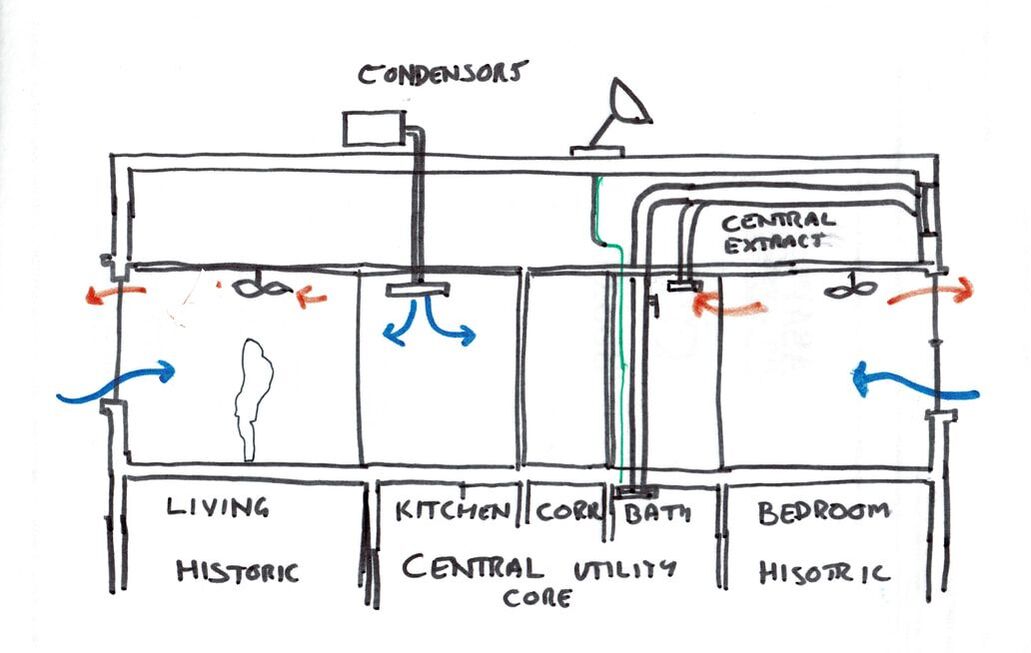 CONDENSORS
CENTRAL
EXTRACT
LIVING
KITCHEN
CORR
BATH
BEDROOM
HISTORIC
CENTRAL UTILITY
CORE
HISOTRIC